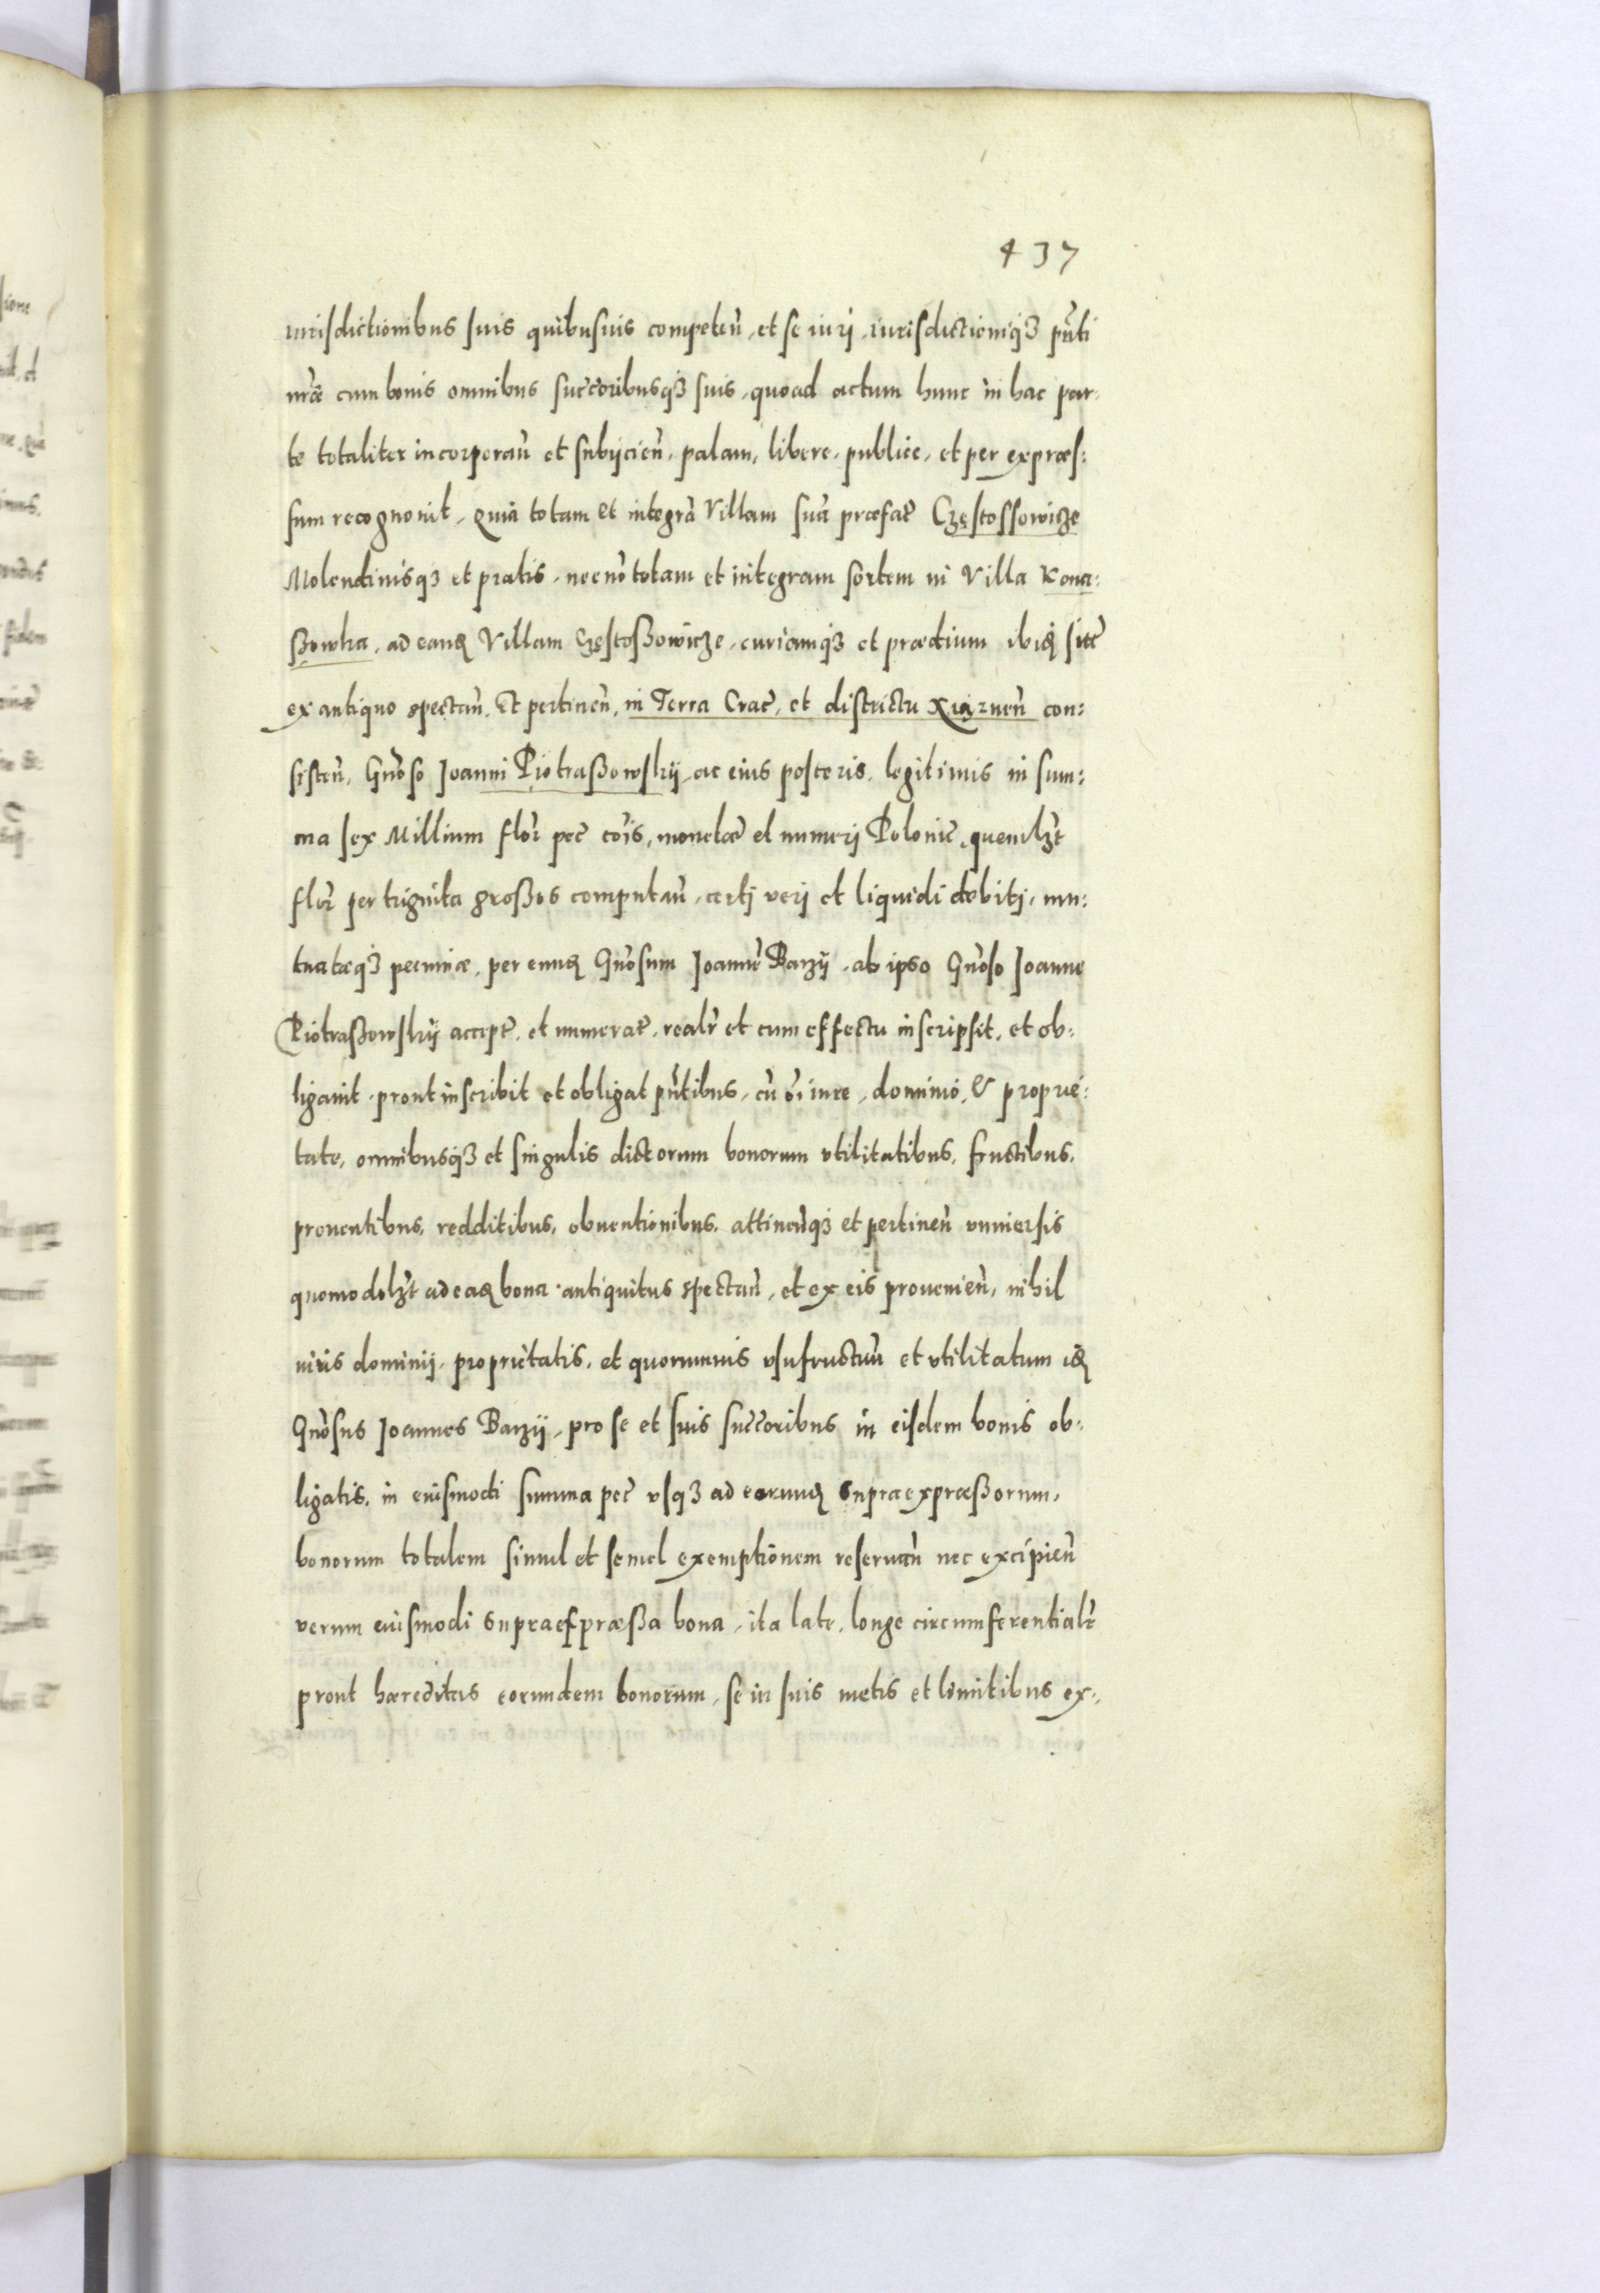 437
iurisdictionibus suis quibusuis competeñ, et se iurj, iurisdictioniq3 pñti
nr̃æ cum bonis omnibus succ̃oribusq3 suis, quoad actum hunc in hac par-
te totaliter incorporañ et subijcieñ, palam, libere, publice, et per expræs:
sum recognouit, quia totam et integrã Villam suã præfat̃ Częstossowicze
Molendinisq3 et pratis, necnõ totam et integram sortem in Villa Kona:
ßowka, ad eanđ Villam Częstoßowicze, curiamq3 et prædium ibiđ sitt̃
ex antiquo spectañ, Et pertineñ, in Terra Crac̃, et districtu Xiązneñ con:
sisteñ, Gñoso Joanni Piotraßowskij, ac eius posteris, legitimis in sum:
ma sex Millium flor̃ pec̃ cõis, monetæ et numerj Polonic̃, quemlʒt
flor̃ per triginta großos computañ, certj verj et liquidi debitj, mu:
tuatæq3 pecuniæ, per eunđ Gñosum Joannẽ Barzij, ab ipso Gñoso Joanne
Piotraßowskij accept̃, et numerat̃, realr̃ et cum effectu inscripsit, et ob:
ligauit, prout inscribit et obligat pñtibus, cũ õi iure, dominio, & proprie:
tate, omnibusq3 et singulis dictorum bonorum vtilitatibus, fructibus,
prouentibus, redditibus, obuentionibus, attineñq3 et pertineñ vniuersis
quomodolʒt ad eađ bona antiquitus spectañ, et ex eis prouenieñ, nihil
iuris dominij, proprietatis, et quorumuis vsufructuũ et vtilitatum iđ
Gñosus Joannes Barzij, pro se et suis succ̃oribus in eisdem bonis ob:
ligatis, in eiusmodi summa pec̃ vsq3 ad eorunđ supraexpræßorum,
bonorum totalem simul et semel exemptionem reseruañ nec excipieñ
verum eiusmodi supraexpræßa bona, ita late, longe circumferentialr̃
prout hæreditas eorundem bonorum, se in suis metis et limitibus ex: